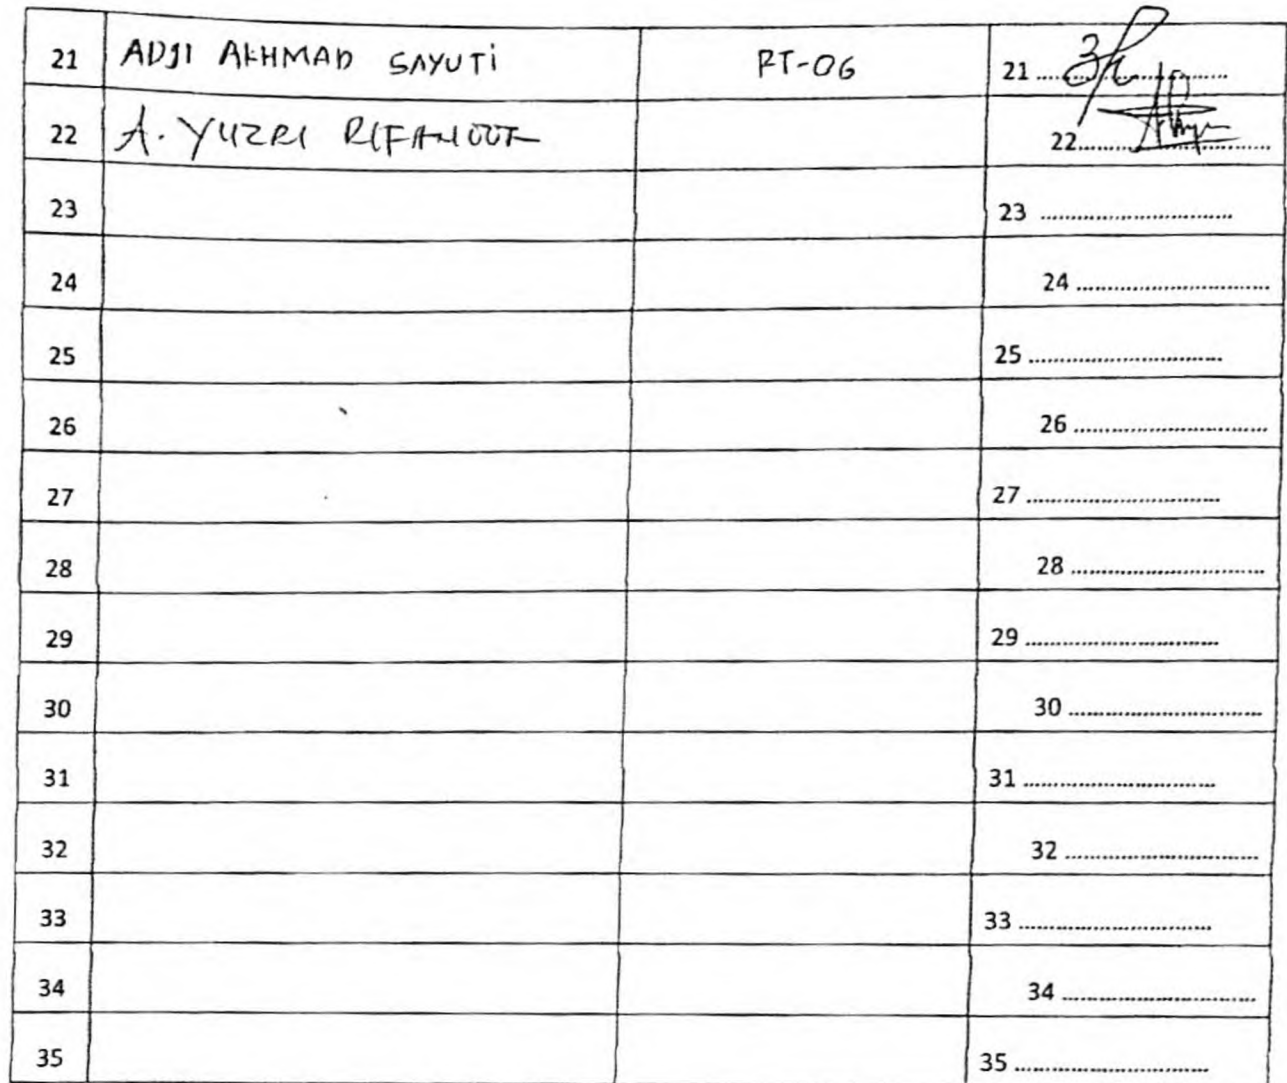 21 ADJI AKHMAD SAYUTI RT-06 21 ........................
22 A. YUZRI RIFANOOR 22 ........................
23 23 ........................
24 24 ........................
25 25 ........................
26 26 ........................
27 27 ........................
28 28 ........................
29 29 ........................
30 30 ........................
31 31 ........................
32 32 ........................
33 33 ........................
34 34 ........................
35 35 ........................